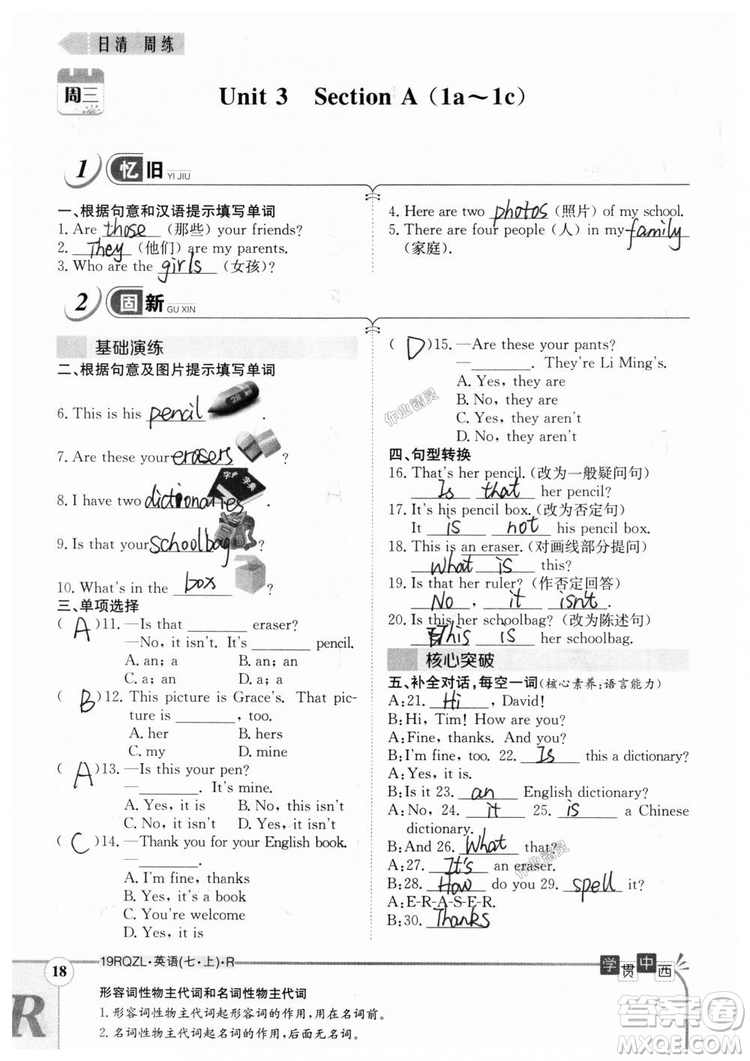 日清 周练
周三
Unit 3 Section A（1a～1c）
1 忆旧 YI JIU
一、根据句意和汉语提示填写单词
1. Are those（那些）your friends?
2. They（他们）are my parents.
3. Who are the girls（女孩）?
4. Here are two photos（照片）of my school.
5. There are four people（人）in my family
（家庭）.
2 固新 GU XIN
基础演练
二、根据句意及图片提示填写单词
6. This is his pencil.
7. Are these your erasers?
8. I have two dictionaries.
9. Is that your schoolbag?
10. What's in the box?
三、单项选择
( A )11. —Is that ______ eraser?
—No, it isn't. It's ______ pencil.
A. an; a B. an; an
C. a; an D. a; a
( B )12. This picture is Grace's. That pic-
ture is ______, too.
A. her B. hers
C. my D. mine
( A )13. —Is this your pen?
—______. It's mine.
A. Yes, it is B. No, this isn't
C. Yes, this is D. No, it isn't
( C )14. —Thank you for your English book.
—______.
A. I'm fine, thanks
B. Yes, it is
C. You're welcome
D. Yes, it's a book
( D )15. —Are these your pants?
—______. They're Li Ming's.
A. Yes, they are
B. No, they are
C. Yes, they aren't
D. No, they aren't
四、句型转换
16. That's her pencil.（改为一般疑问句）
Is that her pencil?
17. It's his pencil box.（改为否定句）
It is not his pencil box.
18. This is an eraser.（对画线部分提问）
What is this?
19. Is that her ruler?（作否定回答）
No, it isn't.
20. Is this her schoolbag?（改为陈述句）
This is her schoolbag.
核心突破
五、补全对话,每空一词(核心素养:语言能力)
A: 21. Hi, David!
B: Hi, Tim! How are you?
A: Fine, thanks. And you?
B: I'm fine, too. 22. Is this a dictionary?
A: Yes, it is.
B: Is it 23. an English dictionary?
A: No, 24. it 25. is a Chinese
dictionary.
B: And 26. What that?
A: 27. It's an eraser.
B: 28. How do you 29. spell it?
A: E-R-A-S-E-R.
B: 30. Thanks.
18
19RQZL·英语(七·上)·R
学贯中西
R
形容词性物主代词和名词性物主代词
1. 形容词性物主代词起形容词的作用,用在名词前。
2. 名词性物主代词起名词的作用,后面无名词。
作业精灵
作业精灵
答案圈